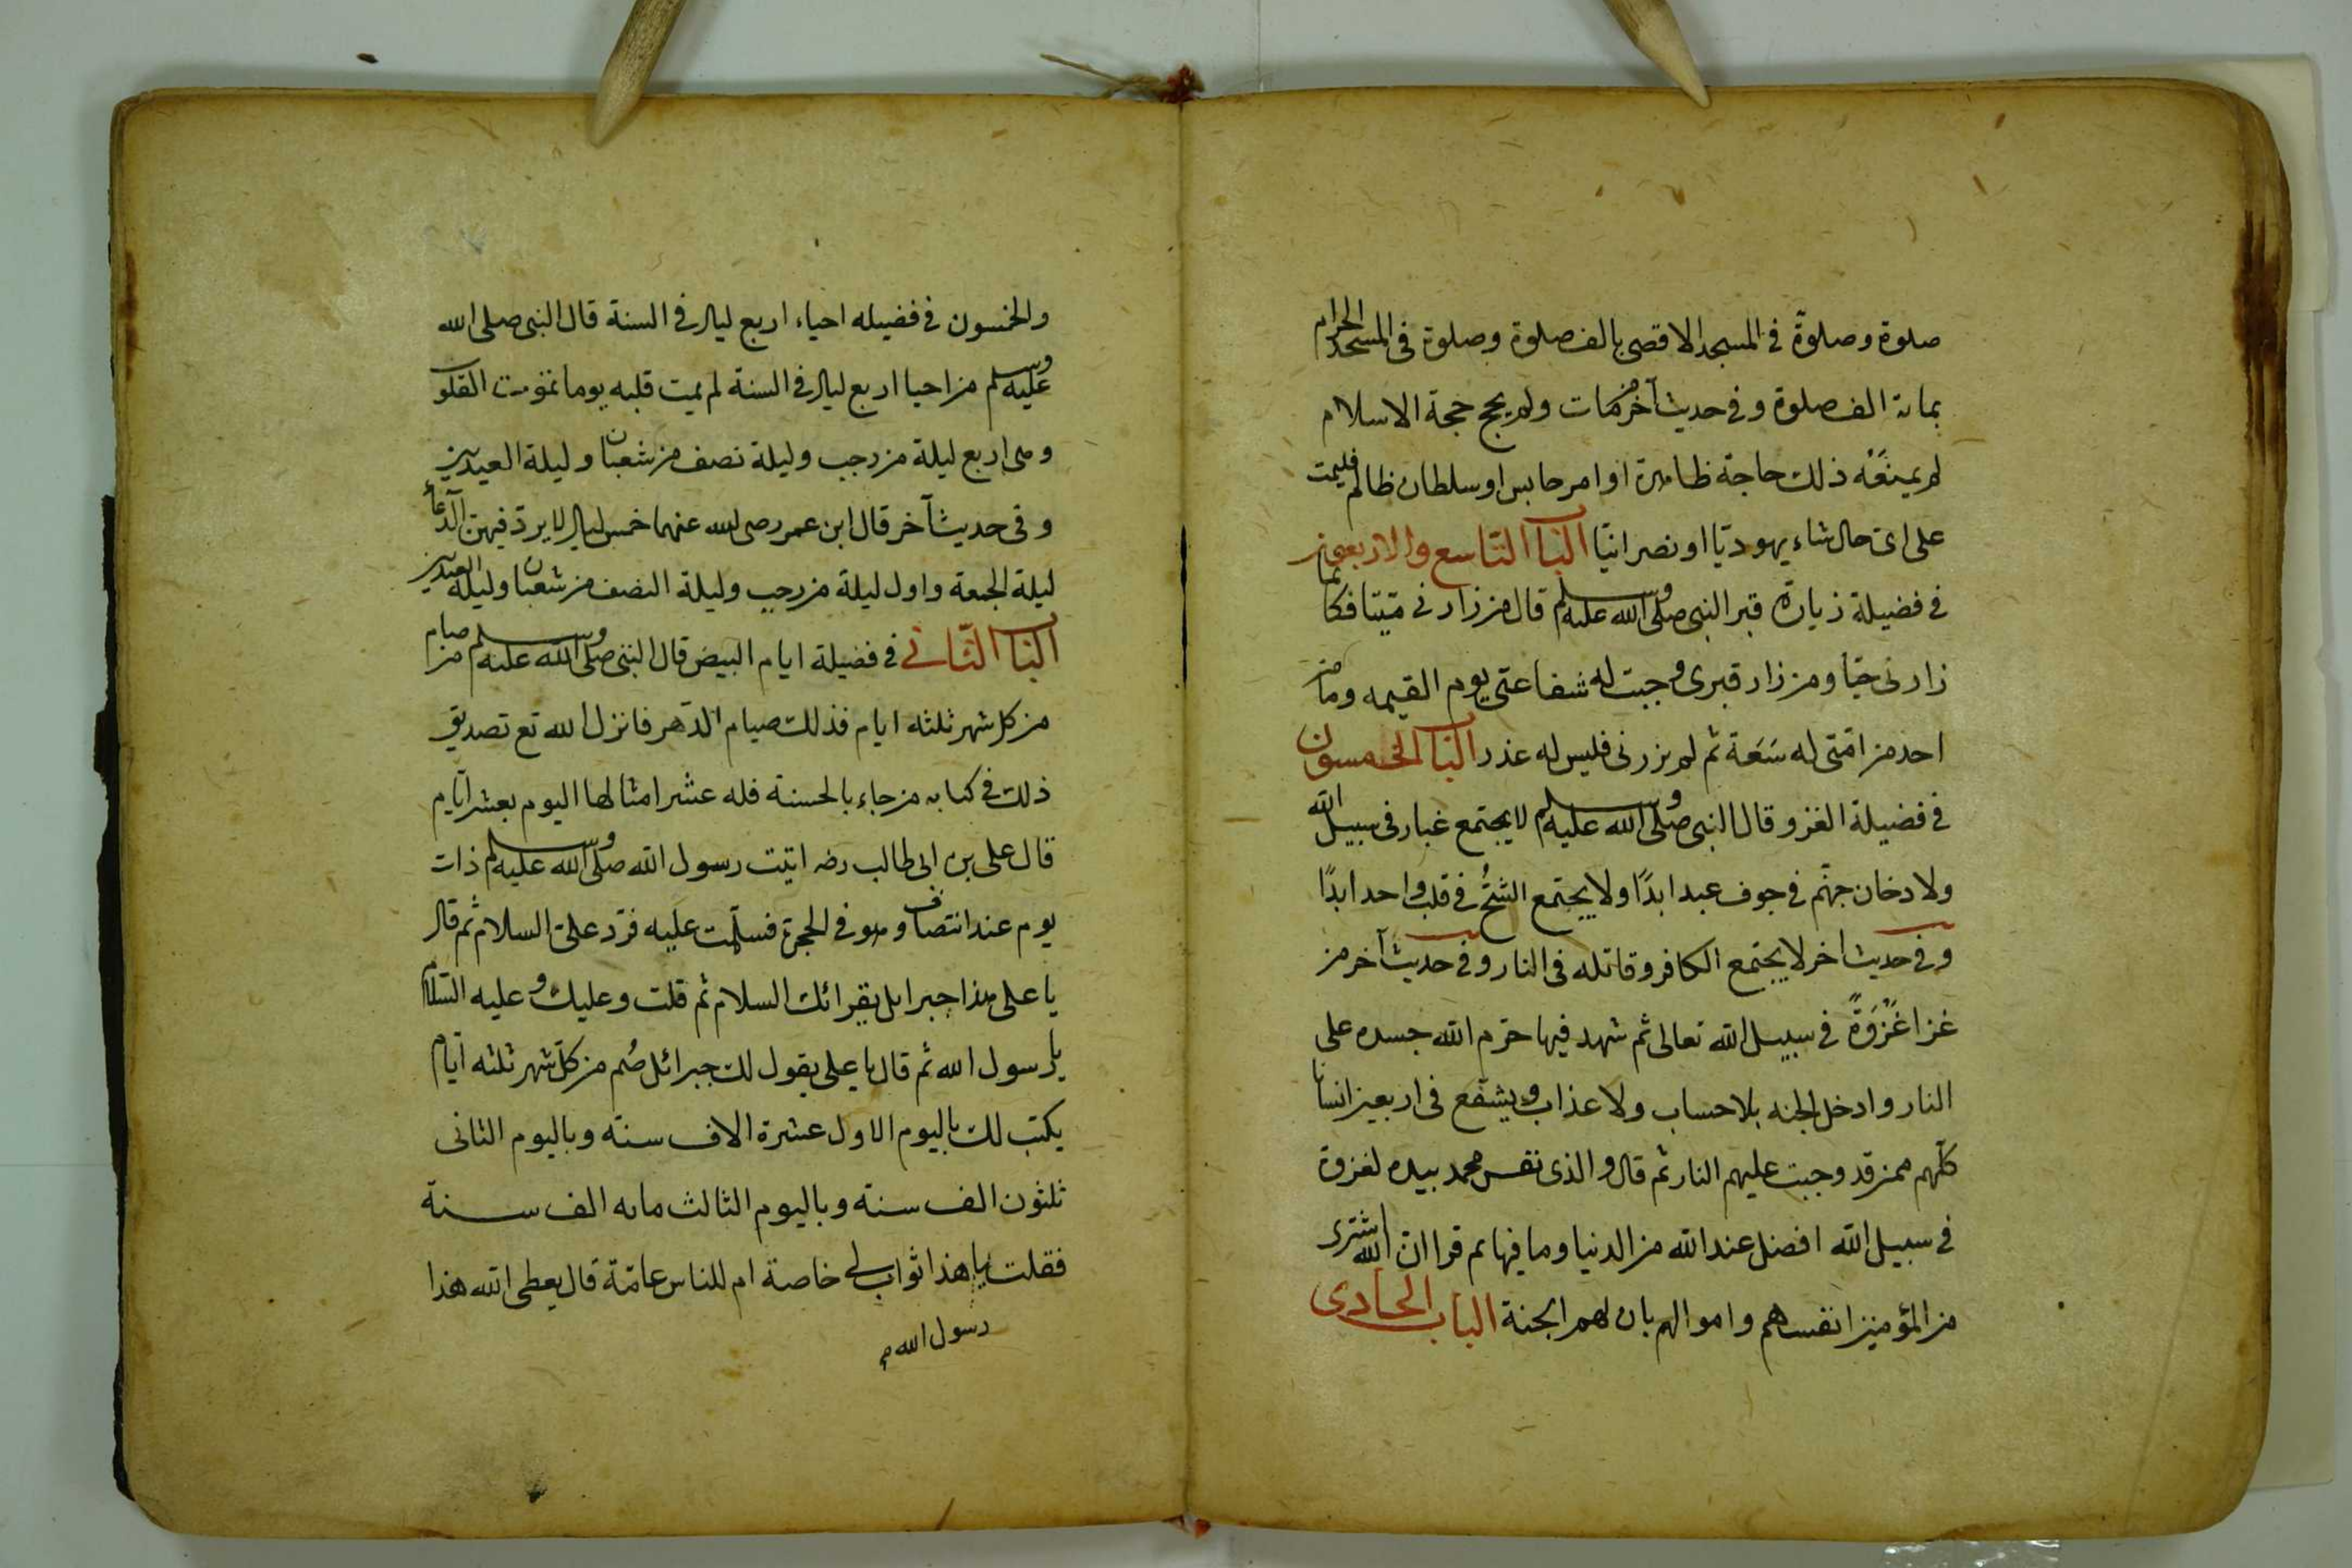 صلوة وصلوةً في المسجد الاقصى بالف صلوة وصلوة فى المسجد الحرام
بماىة الف صلوة وفى حديث آخر من مات ولم يحج حجة الاسلام
لم يمنعْه ذلك حاجة ظاهرة او امر حابس او سلطان ظالم فليمت
على اىّ حال شاء يهوديّا او نصرانيّا الباب التّاسع والاربعين
في فضيلة زيارة قبر النبي صلى الله عليه وسلم قال من زارنى ميّتا فكانما
زارنى حيّا ومن زار قبرى وجبت له شفاعتى يوم القيمه وما من
احد من امّتى له سَعَة ثم لم يزرنى فليس له عذر الباب الخمسون
في فضيلة الغزو قال النبي صلى الله عليه وسلم لا يجتمع غبار فى سبيل الله
ولا دخان جهنّم في جوف عبد ابدًا ولا يجتمع الشحّ في قلب واحد ابدًا
وفي حديث اخر لا يجتمع الكافر وقاتله فى النار وفى حديث آخر من
غزا غَزْوَةً في سبيل الله تعالى ثم شهد فيها حرّم الله جسده على
النار وادخل الجنه بلا حساب ولا عذاب ويشفّع فى اربعين انسانا
كلّهم ممن قد وجبت عليهم النار ثم قال والذى نفس محمد بيده لغزوة
في سبيل الله افضل عند الله من الدنيا وما فيها ثم قرا انّ الله اشترى
من المؤمنين انفسهم واموالهم بان لهم الجنة الباب الحادى
والخمسون في فضيله احياء اربع ليال في السنة قال النبي صلى الله
عليه وسلم من احيا اربع ليال في السنة لم يمت قلبه يوما تموت القلوب
وهى اربع ليلة من رجب وليلة نصف من شعبان وليلة العيدين
وفى حديث آخر قال ابن عمر رضى الله عنهما خمس ليال لا يردّ فيهن الدّعاء
ليلة الجمعة واول ليلة من رجب وليلة النصف من شعبان وليلة العيدين
الباب الثّانى في فضيلة ايام البيض قال النبى صلى الله عليه وسلم من صام
من كل شهر ثلثه ايام فذلك صيام الدّهر فانزل الله تع تصديق
ذلك في كتابه من جاء بالحسنة فله عشر امثالها اليوم بعشر ايّام
قال على بن ابى طالب رضه اتيت رسول الله صلى الله عليه وسلم ذات
يوم عند انتصاف وهو في الحجرة فسلّمت عليه فردّ علىّ السلام ثم قال
يا على هذا جبرايل يقرائك السلام ثم قلت وعليك وعليه السّلام
يا رسول الله ثم قال يا على يقول لك جبرائل صُم من كلّ شهر ثلثه ايّام
يكتب لك باليوم الاول عشرة الاف سنة وباليوم الثانى
ثلثون الف سنة وباليوم الثالث مايه الف سنة
فقلت يا هذا ثواب لى خاصة ام للناس عامّة قال يعطى الله هذا
رسول الله م